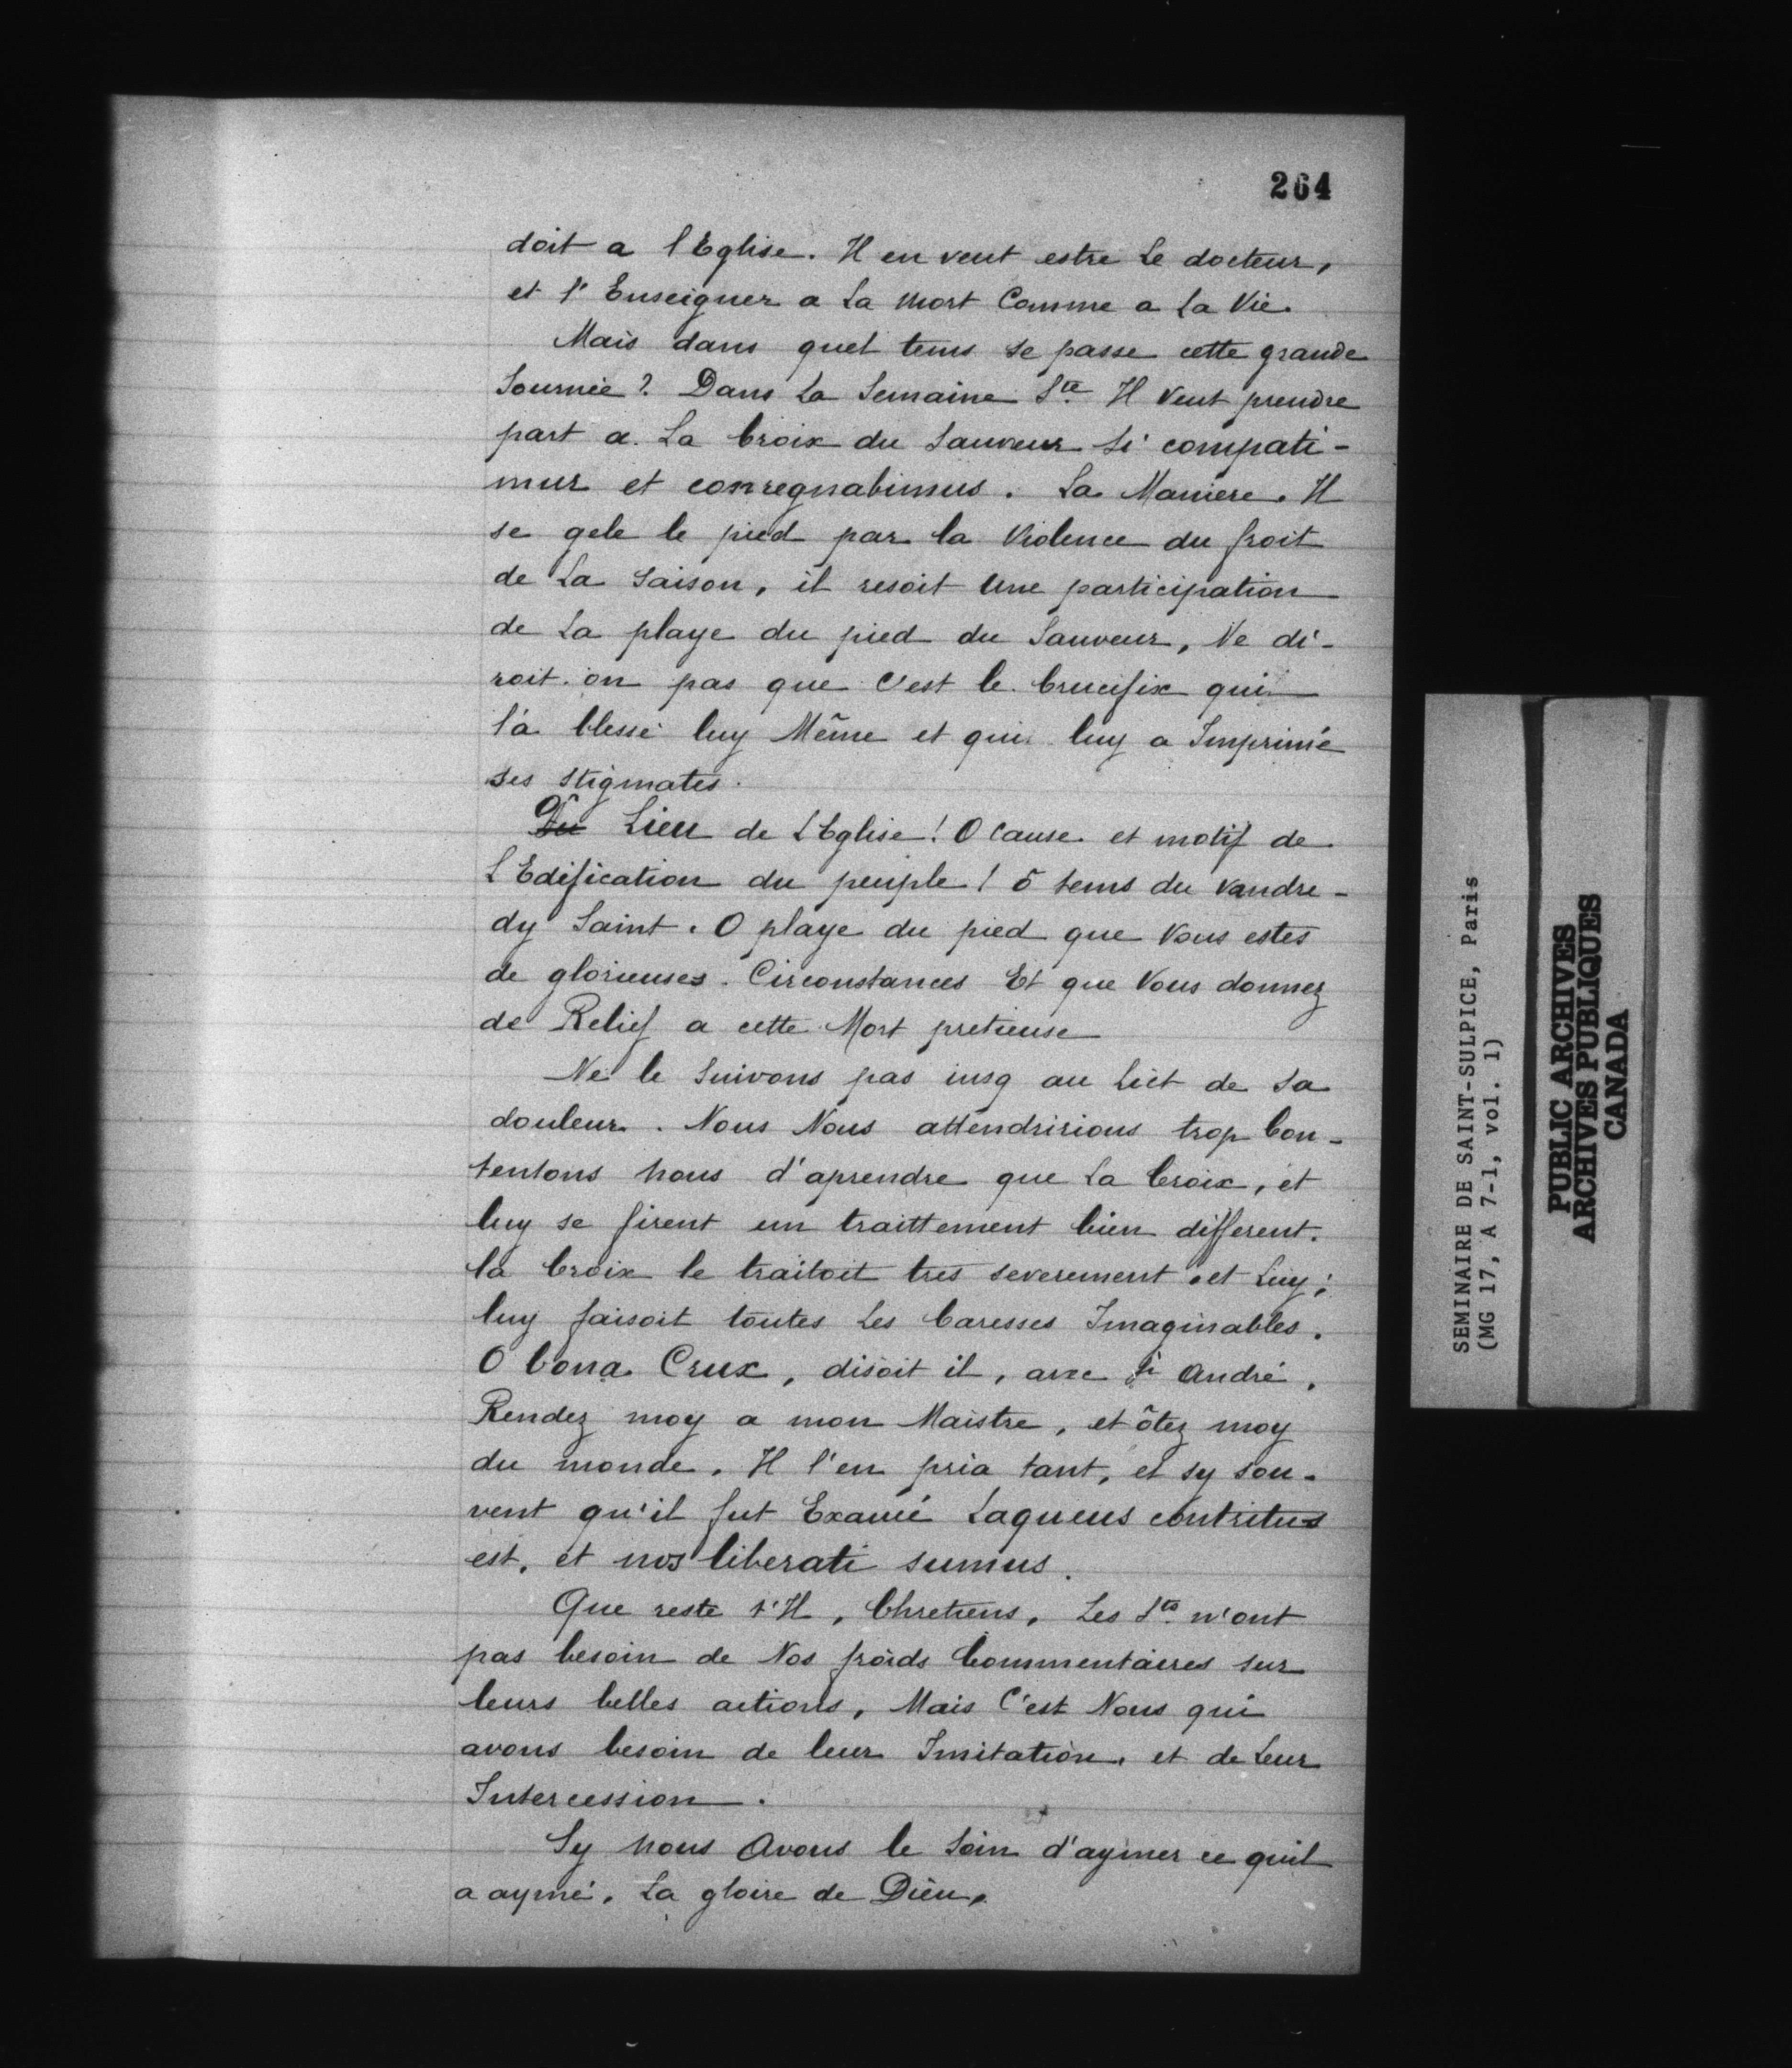 264
doit a l'Eglise. Il en veut estre Le docteur,
et l'Enseigner a La Mort Comme a La Vie.
Mais dans quel tems se passe cette grande
Journée? Dans La Semaine Ste. Il Veut prendre
part a La Croix du Sauveur Si compati-
mur et conregnabimus. La Maniere. Il
se gele le pied par la Violence du froit
de La Saison, il resoit Une participation
de La playe du pied du Sauveur, Ne di-
roit-on pas que C'est le Crucifix qui
l'a blessé luy Même et qui luy a Imprimé
ses stigmates.
Ô Lieu de L'Eglise! O Cause et motif de
L'Edification du peuple! ô tems du Vandre-
dy Saint. O playe du pied que Vous estes
de glorieuses Circonstances Et que Vous donnez
de Relief a cette Mort pretieuse
Ne le Suivons pas iusq au Lict de Sa
douleur. Nous Nous attendririons trop Con-
tentons nous d'aprendre que La Croix, et
luy se firent un traittement bien different.
la Croix le traitoit tres severement et Luy,
luy faisoit toutes Les Caresses Imaginables.
O bona Crux, disoit il, avec St André,
Rendez moy a mon Maistre, et ôtez moy
du monde. Il l'en pria tant, et sy sou-
vent qu'il fut Exaucé Laqueus contritus
est, et nos liberati sumus.
Que reste t'Il, Chretiens, Les Sts. n'ont
pas besoin de Nos froids Commentaires sur
leurs belles actions, Mais C'est Nous qui
avons besoin de leur Imitation, et de Leur
Intercession.
Sy nous Avons le Soin d'aymer ce quil
a aymé, La gloire de Dieu,
SEMINAIRE DE SAINT-SULPICE, Paris
(MG 17, A 7-1, vol. 1)
PUBLIC ARCHIVES
ARCHIVES PUBLIQUES
CANADA